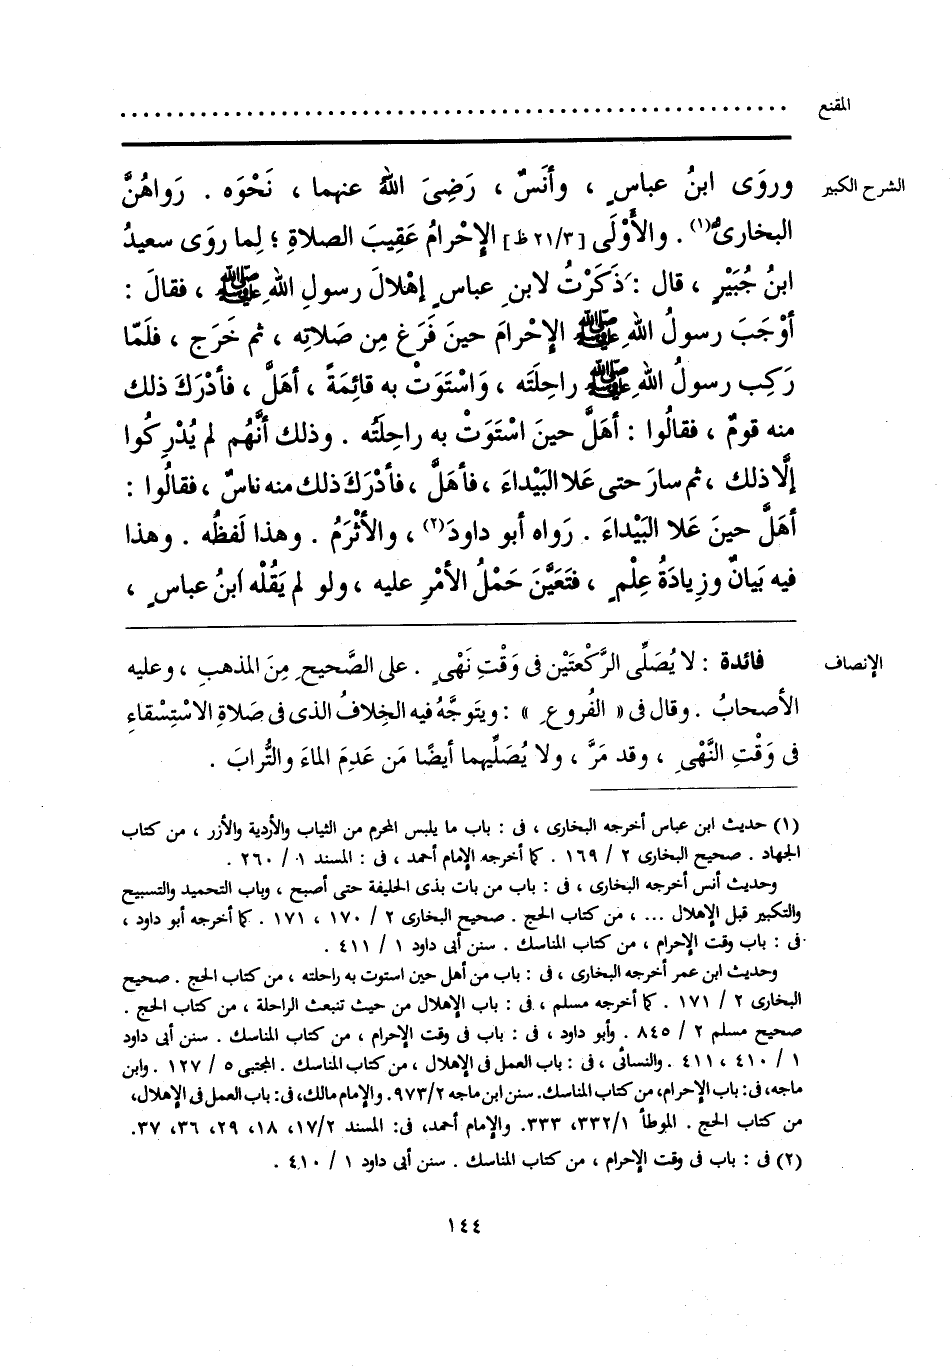 المقنع ........................................................
الشرح الكبير وروَى ابنُ عباسٍ ، وأنَسٌ ، رَضِىَ اللهُ عنهما ، نَحْوَه . رَواهُنَّ
البخارىُّ(١) . والأَوْلَى [ ٢١/٣ ظ ] الإِحْرامُ عَقِيبَ الصلاةِ ؛ لِما روَى سعيدُ
ابنُ جُبَيْرٍ ، قال : ذَكَرْتُ لابنِ عباسٍ إهْلالَ رسولِ اللهِ ﷺ ، فقالَ :
أوْجَبَ رسولُ اللهِ ﷺ الإِحْرامَ حينَ فَرَغ مِن صَلاتِه ، ثم خَرَج ، فلَمّا
رَكِب رسولُ اللهِ ﷺ راحِلتَه ، وَاسْتَوَتْ به قائِمَةً ، أهَلَّ ، فأدْرَكَ ذلك
منه قومٌ ، فقالُوا : أهَلَّ حينَ اسْتَوَتْ به راحِلَتُه . وذلك أنَّهُم لم يُدْرِكُوا
إلَّا ذلك ، ثم سارَ حتى عَلا البَيْداءَ ، فأهَلَّ ، فأدْرَكَ ذلك منه ناسٌ ، فقالُوا :
أهَلَّ حينَ عَلا البَيْداءَ . رَواه أبو داودَ(٢) ، والأثْرَمُ . وهذا لَفظُه . وهذا
فيه بَيانٌ وزِيادَةُ عِلْمٍ ، فتَعَيَّنَ حَمْلُ الأمْرِ عليه ، ولو لم يَقُلْه ابنُ عباسٍ ،
الإنصاف فائدة : لا يُصَلِّى الرَّكْعَتَيْن فى وَقْتِ نَهْىٍ . على الصَّحيحِ مِنَ المذهبِ ، وعليه
الأصحابُ . وقال فى « الفُروعِ » : ويتَوجَّهُ فيه الخِلافُ الذى فى صَلاةِ الاسْتِسْقاءِ
فى وَقْتِ النَّهْىِ ، وقد مَرَّ ، ولا يُصَلِّيهما أيضًا مَن عَدِمَ الماءَ والتُّرابَ .
(١) حديث ابن عباس أخرجه البخارى ، فى : باب ما يلبس المحرم من الثياب والأردية والأزر ، من كتاب
الجهاد . صحيح البخارى ٢ / ١٦٩ . كما أخرجه الإمام أحمد ، فى : المسند ١ / ٢٦٠ .
وحديث أنس أخرجه البخارى ، فى : باب من بات بذى الحليفة حتى أصبح ، وباب التحميد والتسبيح
والتكبير قبل الإهلال ... ، من كتاب الحج . صحيح البخارى ٢ / ١٧٠ ، ١٧١ . كما أخرجه أبو داود ،
فى : باب وقت الإحرام ، من كتاب المناسك . سنن أبى داود ١ / ٤١١ .
وحديث ابن عمر أخرجه البخارى ، فى : باب من أهل حين استوت به راحلته ، من كتاب الحج . صحيح
البخارى ٢ / ١٧١ . كما أخرجه مسلم ، فى : باب الإهلال من حيث تنبعث الراحلة ، من كتاب الحج .
صحيح مسلم ٢ / ٨٤٥ . وأبو داود ، فى : باب فى وقت الإحرام ، من كتاب المناسك . سنن أبى داود
١ / ٤١٠ ، ٤١١ . والنسائى ، فى : باب العمل فى الإهلال ، من كتاب المناسك . المجتبى ٥ / ١٢٧ . وابن
ماجه، فى: باب الإحرام، من كتاب المناسك. سنن ابن ماجه ٩٧٣/٢. والإمام مالك، فى: باب العمل فى الإهلال،
من كتاب الحج . الموطأ ٣٣٢/١، ٣٣٣. والإمام أحمد، فى: المسند ١٧/٢، ١٨، ٢٩، ٣٦، ٣٧.
(٢) فى : باب فى وقت الإحرام ، من كتاب المناسك . سنن أبى داود ١ / ٤١٠ .
١٤٤